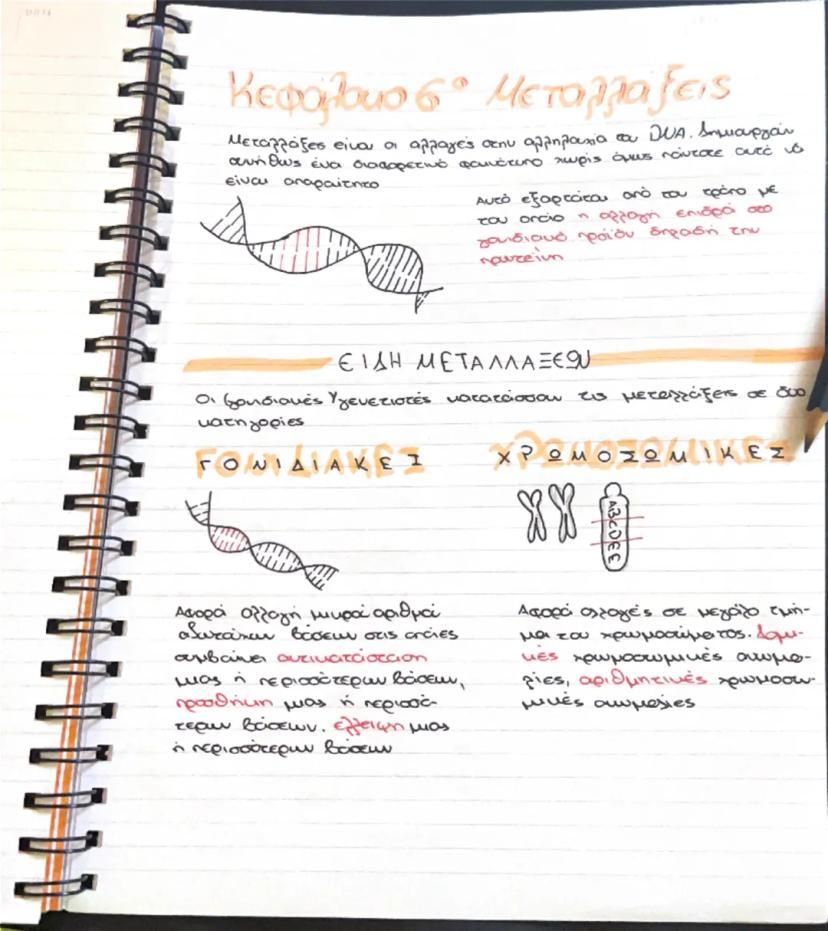 Κεφάλαιο 6° Μεταλλάξεις
Μεταλλάξεις είναι οι αλλαγές στην αλληλουχία του DNA. Δημιουργούν
συνήθως ένα διαφορετικό φαινότυπο χωρίς όμως πάντοτε αυτό να
είναι απαραίτητο
Αυτό εξαρτάται από τον τρόπο με
τον οποίο η αλλαγή επιδρά στο
γονιδιακό προϊόν δηλαδή την
πρωτεΐνη
ΕΙΔΗ ΜΕΤΑΛΛΑΞΕΩΝ
Οι γενετιστές κατατάσσουν τις μεταλλάξεις σε δύο
κατηγορίες
ΓΟΝΙΔΙΑΚΕΣ ΧΡΩΜΟΣΩΜΙΚΕΣ
ABCDEE
Αφορά αλλαγή μικρού αριθμού
αζωτούχων βάσεων στις οποίες
συμβαίνει αντικατάσταση
μιας ή περισσότερων βάσεων,
προσθήκη μιας ή περισσό-
τερων βάσεων. έλλειψη μιας
ή περισσότερων βάσεων
Αφορά αλλαγές σε μεγάλο τμή-
μα του χρωμοσώματος. Δομι-
κές χρωμοσωμικές ανωμα-
λίες, αριθμητικές χρωμοσω-
μικές ανωμαλίες